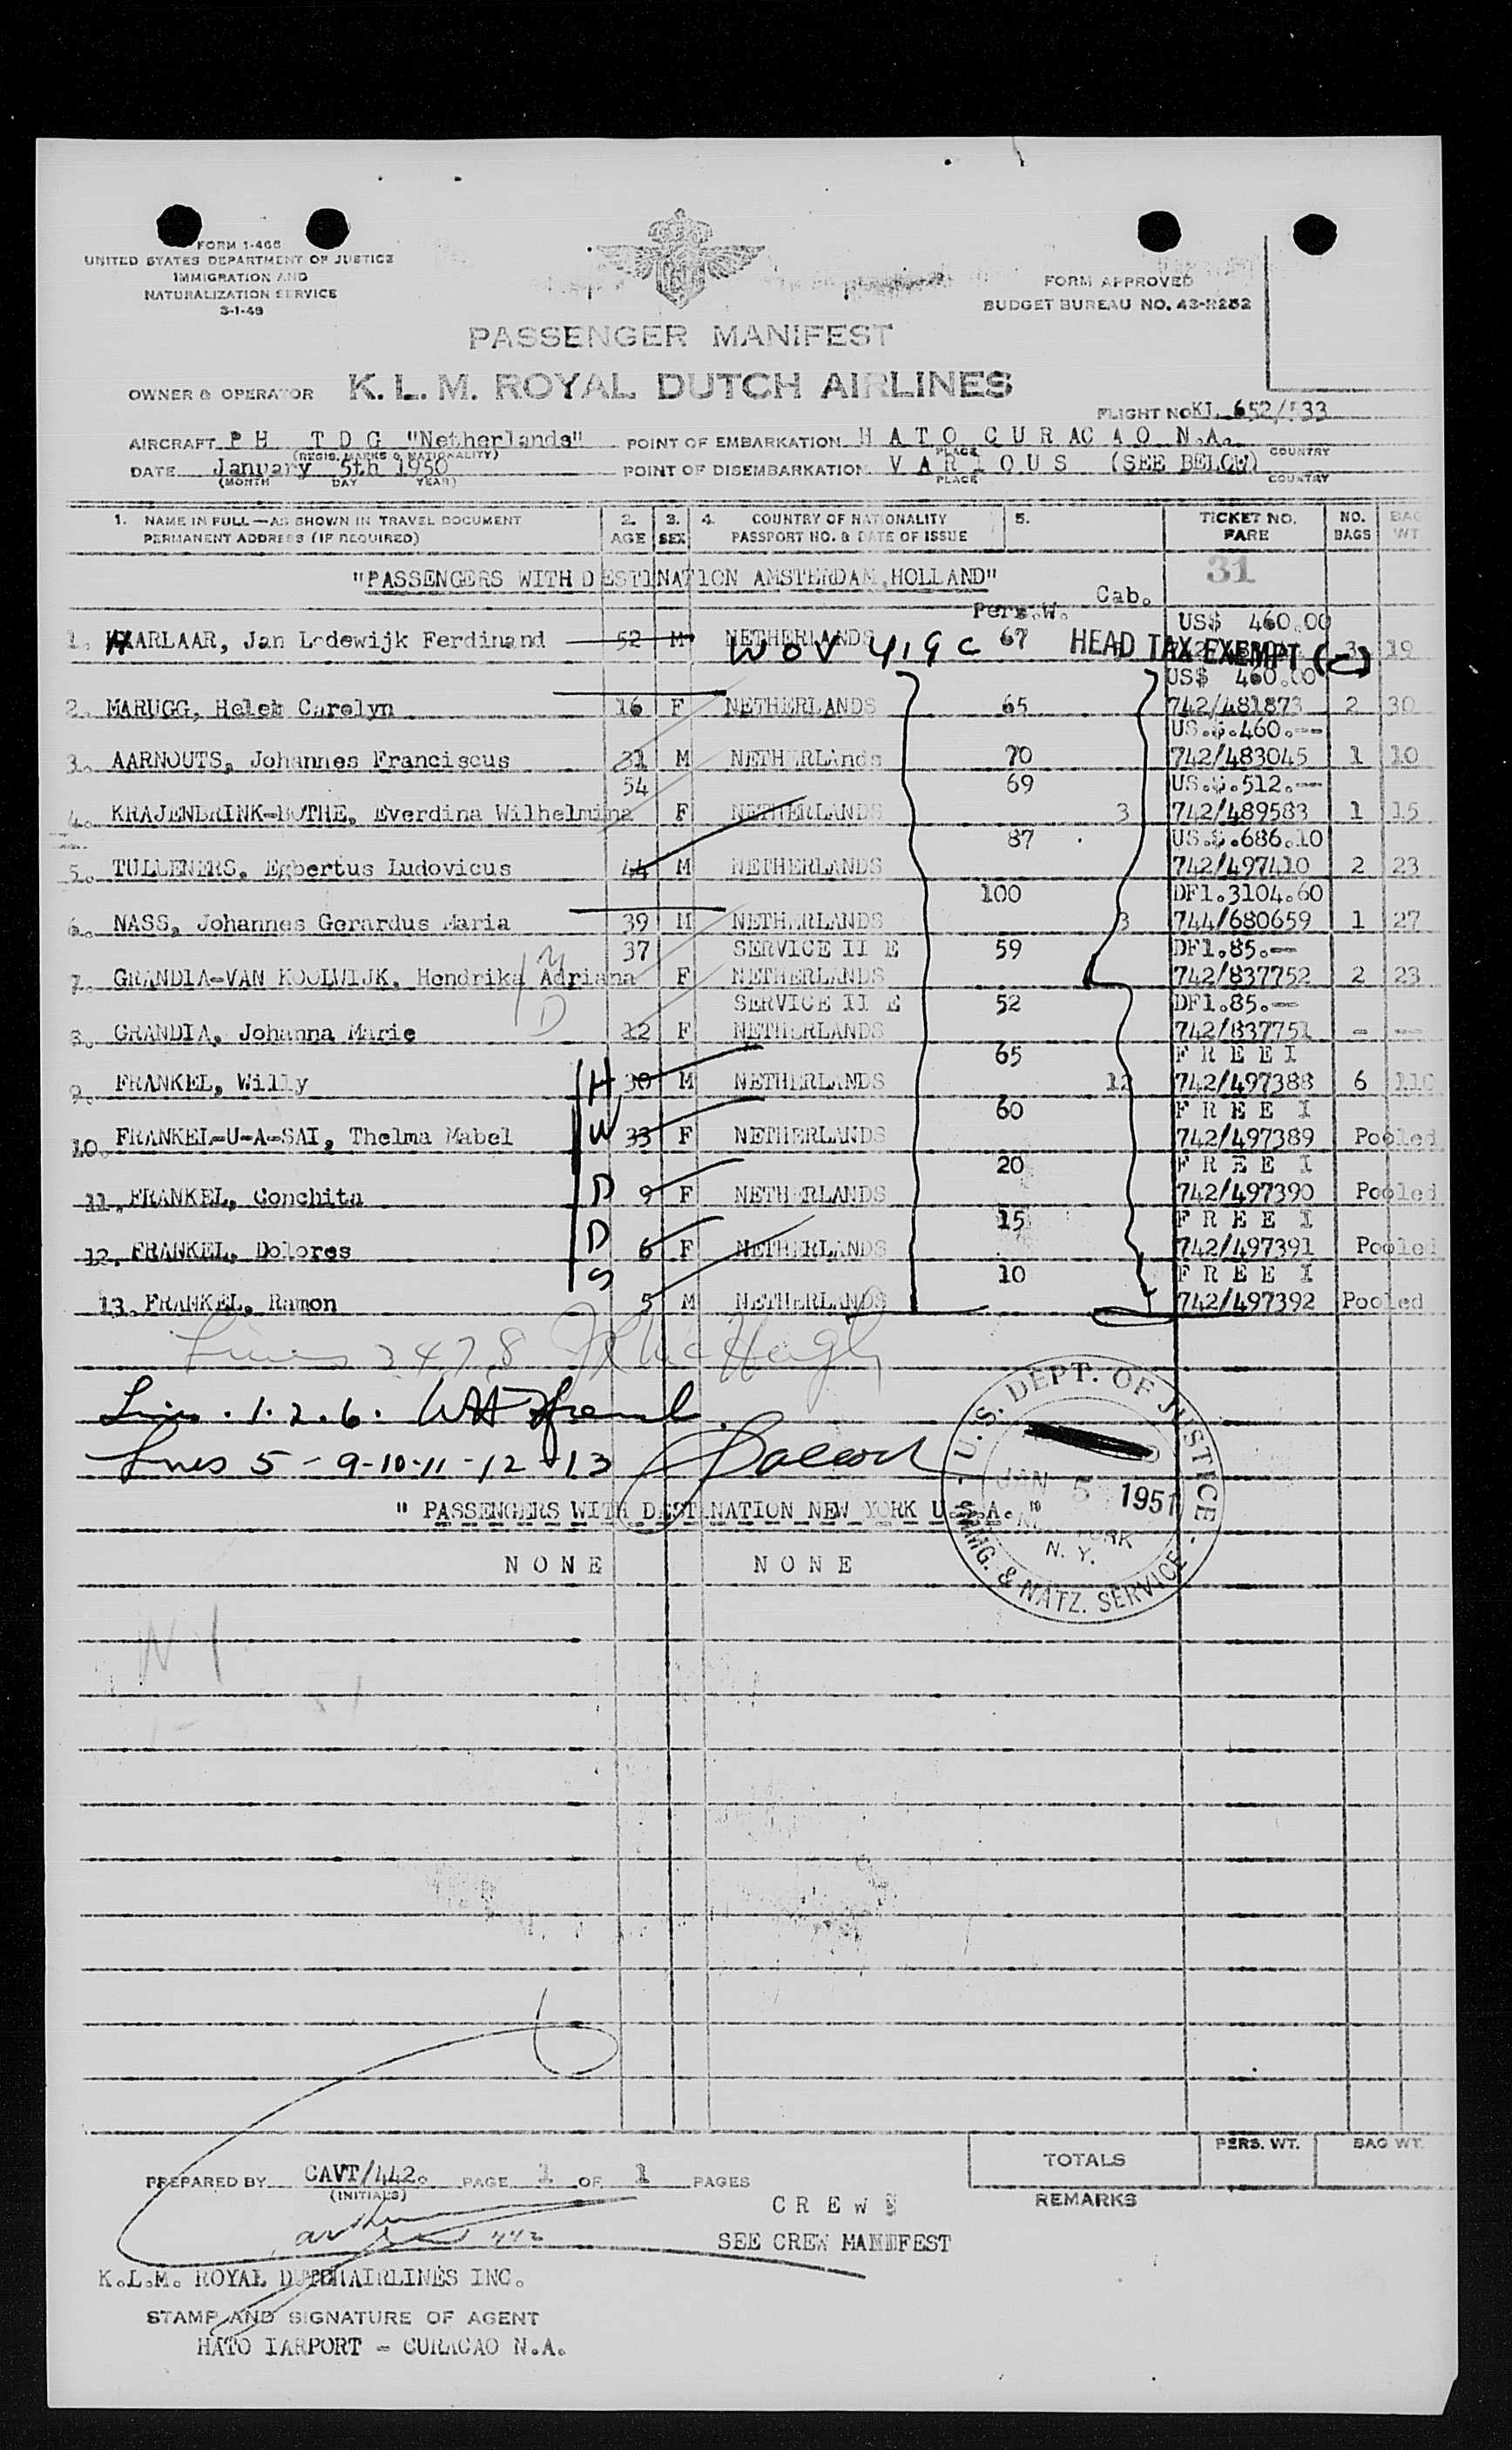 FORM 1-466
UNITED STATES DEPARTMENT OF JUSTICE
IMMIGRATION AND
NATURALIZATION SERVICE
3-1-49
FORM APPROVED
BUDGET BUREAU NO. 43-R252
PASSENGER MANIFEST
OWNER & OPERATOR K. L. M. ROYAL DUTCH AIRLINES
FLIGHT NO KL 652/533
AIRCRAFT P H T D G "Netherlands" POINT OF EMBARKATION H A T O C U R A C A O N.A.
(REGIS. MARKS & NATIONALITY) PLACE COUNTRY
DATE January 5th 1950 POINT OF DISEMBARKATION V A R I O U S (SEE BELOW)
(MONTH DAY YEAR) PLACE COUNTRY
1. NAME IN FULL — AS SHOWN IN TRAVEL DOCUMENT 2. 3. 4. COUNTRY OF NATIONALITY 5. TICKET NO. NO. BAG
PERMANENT ADDRESS (IF REQUIRED) AGE SEX PASSPORT NO. & DATE OF ISSUE FARE BAGS WT
31
"PASSENGERS WITH DESTINATION AMSTERDAM,HOLLAND"
Pers.W. Cab.
US$ 460.00
1. HAARLAAR, Jan Lodewijk Ferdinand 52 M NETHERLANDS 67 3 19
WOV 419C HEAD TAX EXEMPT (C)
US$ 460.00
2. MARUGG, Helen Carolyn 16 F NETHERLANDS 65 742/481873 2 30
US.$.460.--
3. AARNOUTS, Johannes Franciscus 31 M NETHERLAnds 70 742/483045 1 10
54 69 US.$.512.--
4. KRAJENBRINK-BOTHE, Everdina Wilhelmina F NETHERLANDS 3 742/489583 1 15
87 US.$.686.10
5. TULLENERS, Egbertus Ludovicus 44 M NETHERLANDS 742/497410 2 23
100 DF1.3104.60
6. NASS, Johannes Gerardus Maria 39 M NETHERLANDS 3 744/680659 1 27
37 SERVICE II E 59 DF1.85.--
7. GRANDIA-VAN KOOLWIJK, Hendrika Adriana F NETHERLANDS 742/837752 2 23
M
D
SERVICE II E 52 DF1.85.--
8. GRANDIA, Johanna Marie 12 F NETHERLANDS 742/837751 - --
65 F R E E I
9. FRANKEL, Willy H 30 M NETHERLANDS 12 742/497388 6 110
60 F R E E I
10. FRANKEL-U-A-SAI, Thelma Mabel W 33 F NETHERLANDS 742/497389 Pooled
20 F R E E I
11. FRANKEL, Conchita D 9 F NETHERLANDS 742/497390 Pooled
15 F R E E I
12. FRANKEL, Dolores D 6 F NETHERLANDS 742/497391 Pooled
10 F R E E I
13. FRANKEL, Ramon S 5 M NETHERLANDS 742/497392 Pooled
Lines 3 4 7, 8
Lines. 1. 2. 6.
Lines 5 - 9-10-11-12-13
U. S. DEPT. OF JUSTICE
JAN 5 1951
NEW YORK
N. Y.
IMMG. & NATZ. SERVICE
" PASSENGERS WITH DESTINATION NEW YORK U.S.A. "
N O N E N O N E
TOTALS PERS. WT. BAG WT.
PREPARED BY CAVT/442. PAGE 1 OF 1 PAGES
(INITIALS)
REMARKS
C R E W
442 SEE CREW MANIFEST
K.L.M. ROYAL DUTCH AIRLINES INC.
STAMP AND SIGNATURE OF AGENT
HATO IARPORT - CURACAO N.A.